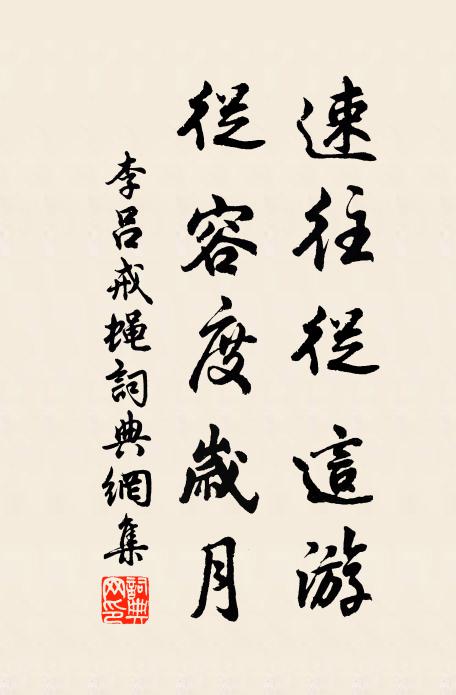 速往從這游
從容度歲月
李呂戒蠅詞典網集
詞典网印